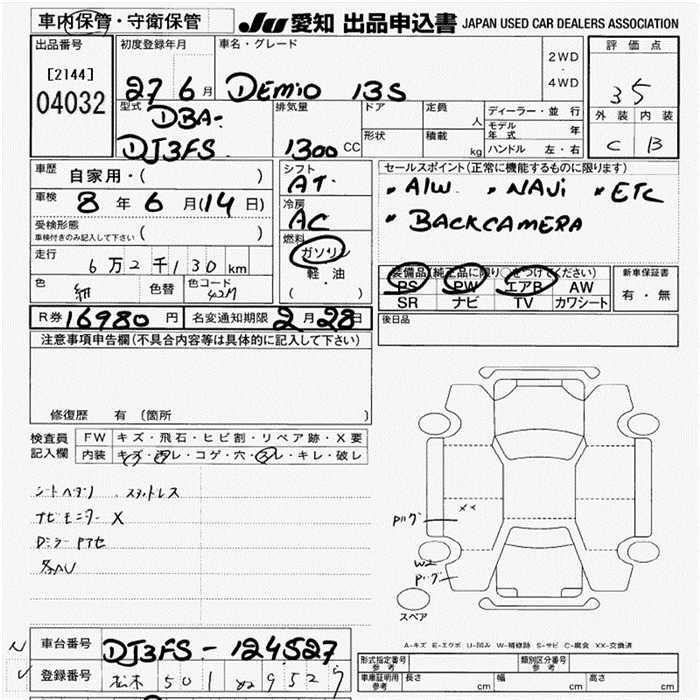 車内保管・守衛保管 JU 愛知 出品申込書 JAPAN USED CAR DEALERS ASSOCIATION
出品番号
[2144]
04032
初度登録年月
27 6月
車名・グレード
DEMIO 13S
2WD
・
4WD
評価点
35
外装 内装
C B
型式
DBA-
DJ3FS
排気量
1300 CC
ドア
形状
定員 人
積載 kg
ディーラー・並行
モデル年式 年
ハンドル 左・右
車歴
自家用・( )
車検 8年6月(14日)
受検形態
車検付きのみ記入して下さい ( )
走行
6万2千130km
色 紺 色替 色コード 42M
シフト
AT
冷房
AC
燃料
ガソリン
軽油
( )
セールスポイント(正常に機能するものに限ります)
・A/W ・NAVi ・ETC
・BACKCAMERA
装備品(純正品に限り○をつけてください)
PS PW エアB AW
SR ナビ TV カワシート
新車保証書
有・無
R券 16980円 名変通知期限 2月28日
後日品
注意事項申告欄(不具合内容等は具体的に記入して下さい)
修復歴 有(箇所 )
検査員
記入欄
FW キズ・飛石・ヒビ割・リペア跡・X要
内装 キズ・汚レ・コゲ・穴・スレ・キレ・破レ
ナビモニター X
スペア
A-キズ E-エクボ U-凹み W-補修跡 S-サビ C-腐食 XX-交換済
車台番号 DJ3FS-124527
登録番号 501 9527
形式指定番号
参考
類別区分番号
参考
車庫証明用
参考
長さ cm 幅 cm 高さ cm